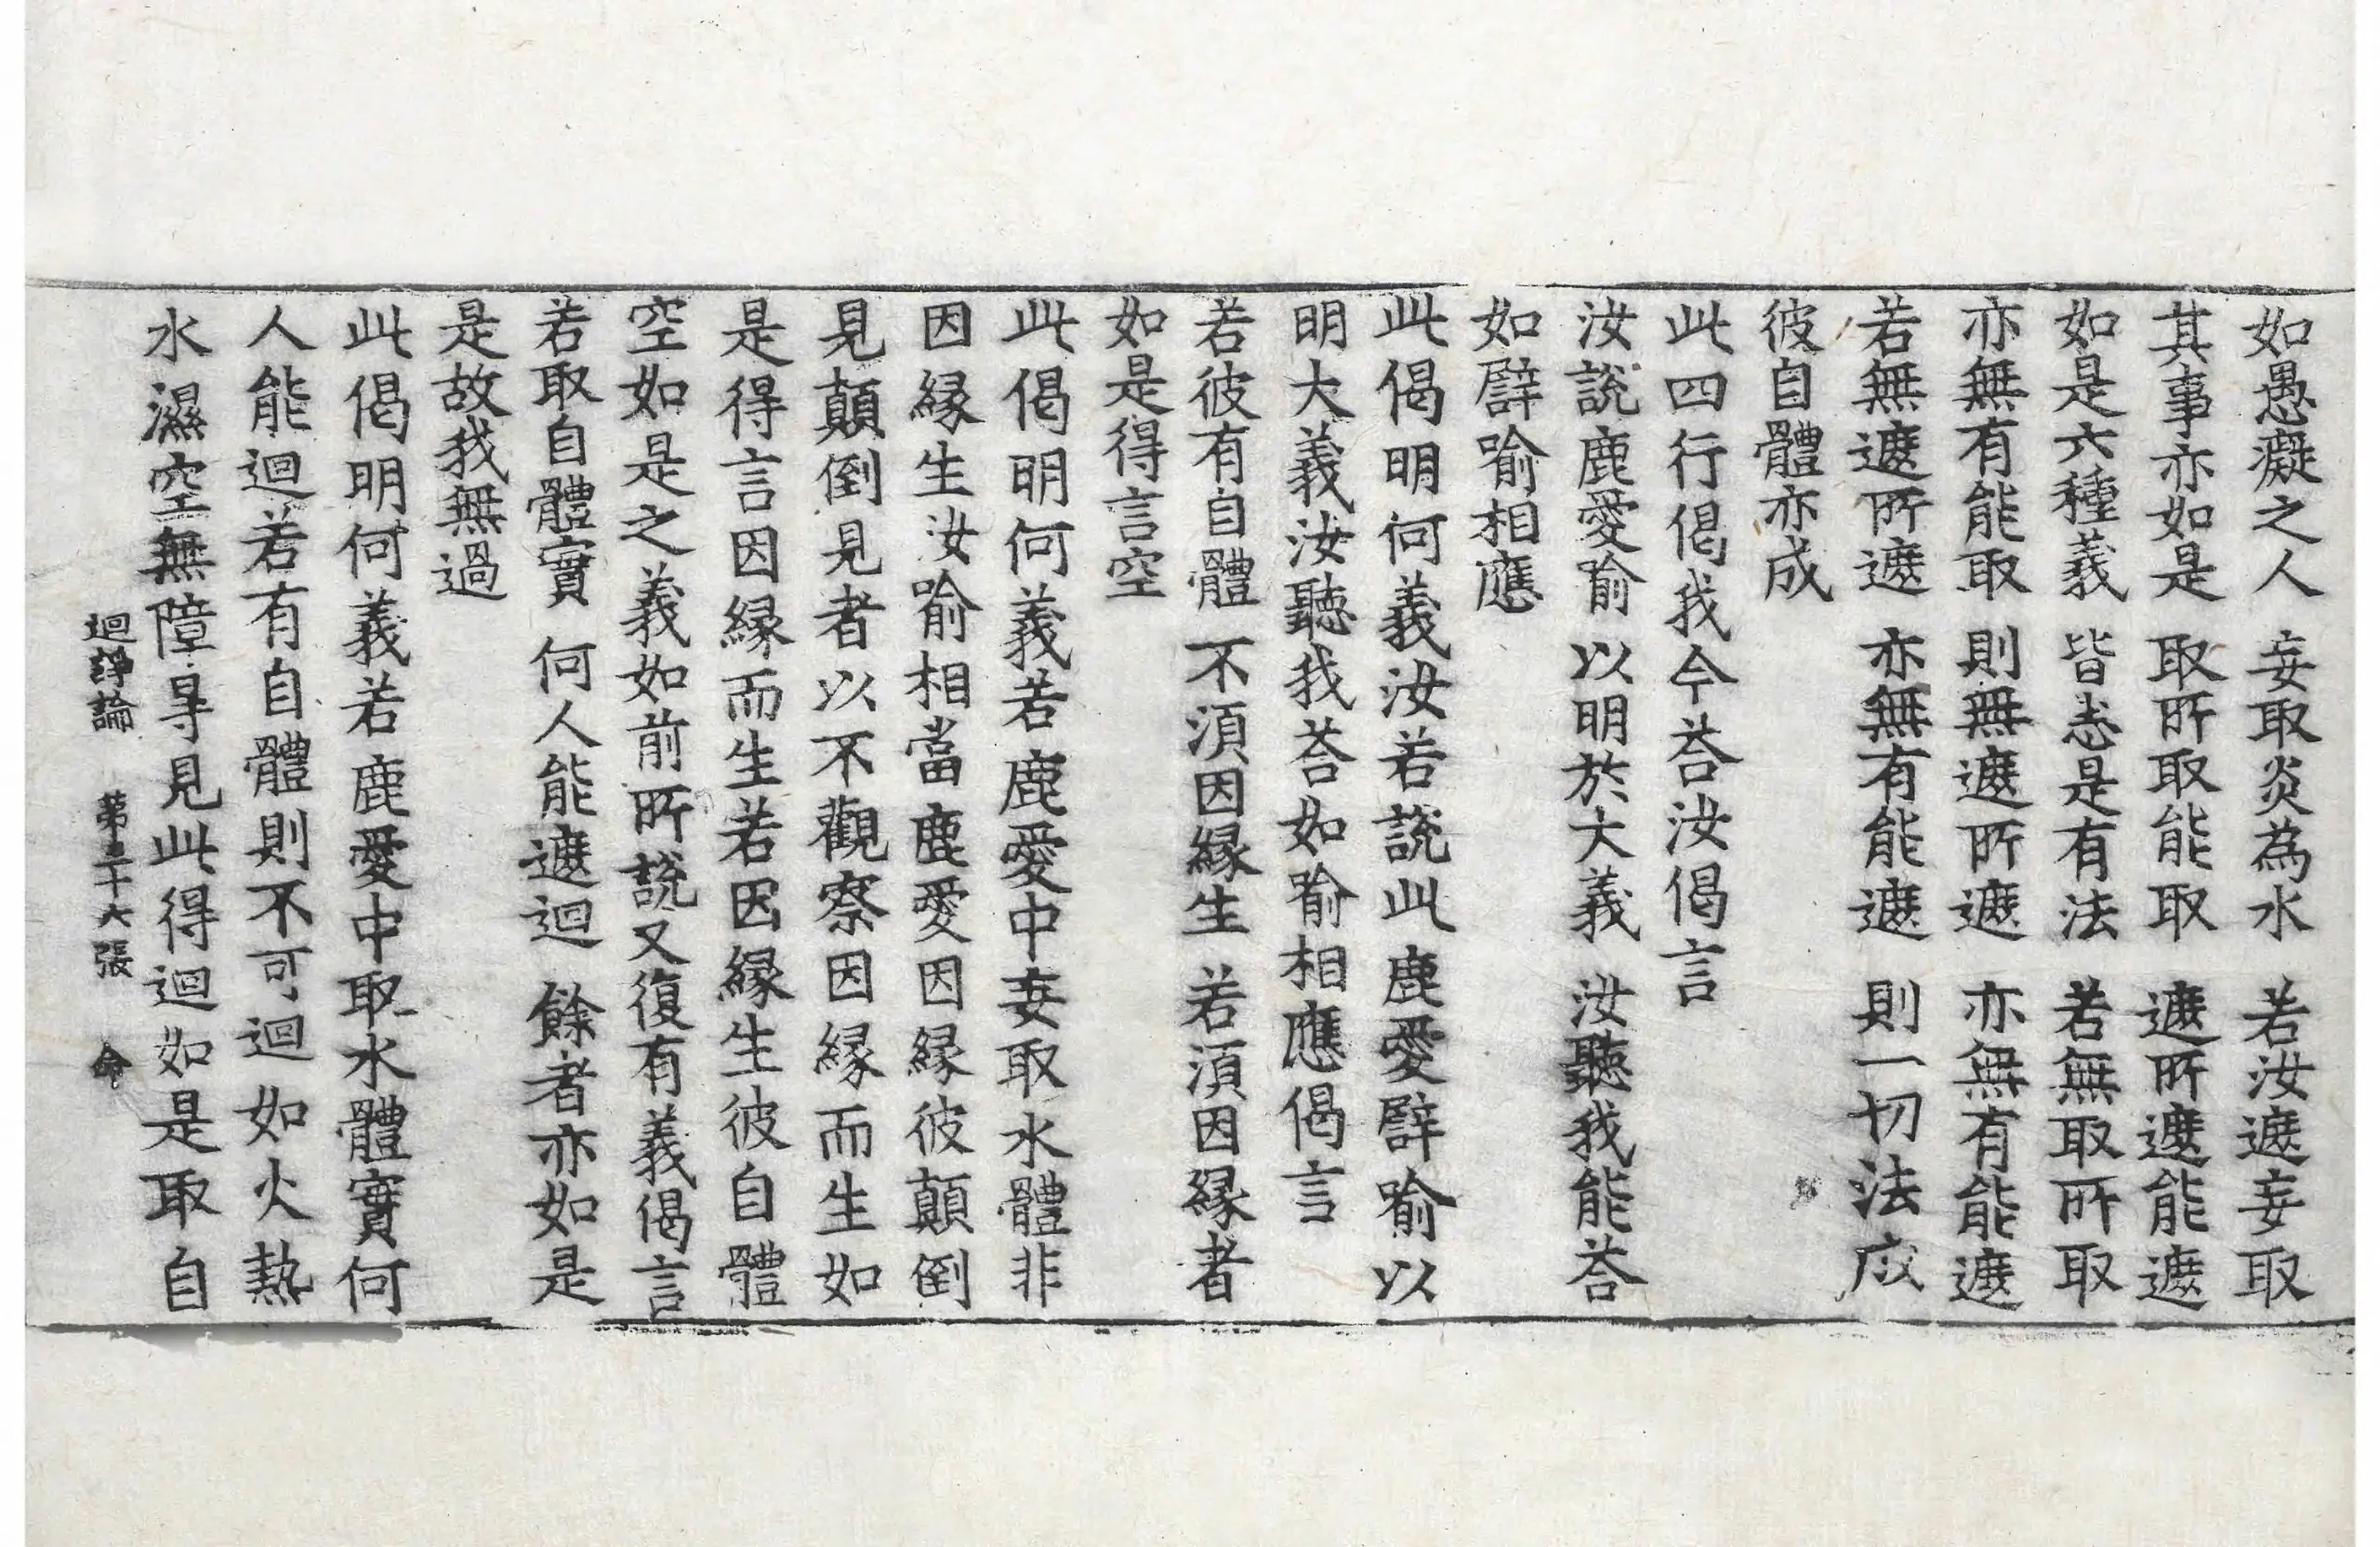 如愚癡之人 妄取炎為水 若汝遮妄取
其事亦如是 取所取能取 遮所遮能遮
如是六種義 皆悉是有法 若無取所取
亦無有能取 則無遮所遮 亦無有能遮
若無遮所遮 亦無有能遮 則一切法成
彼自體亦成
此四行偈我今荅汝偈言
汝說鹿愛喻 以明於大義 汝聽我能荅
如譬喻相應
此偈明何義汝若說此鹿愛譬喻以
明大義汝聽我荅如喻相應偈言
若彼有自體 不湏因緣生 若湏因緣者
如是得言空
此偈明何義若鹿愛中妄取水體非
因緣生汝喻相當鹿愛因緣彼顛倒
見顛倒見者以不觀察因緣而生如
是得言因緣而生若因緣生彼自體
空如是之義如前所說又復有義偈言
若取自體實 何人能遮迴 餘者亦如是
是故我無過
此偈明何義若鹿愛中取水體實何
人能迴若有自體則不可迴如火熱
水濕空無障㝵見此得迴如是取自
迴諍論 第二十六張 命